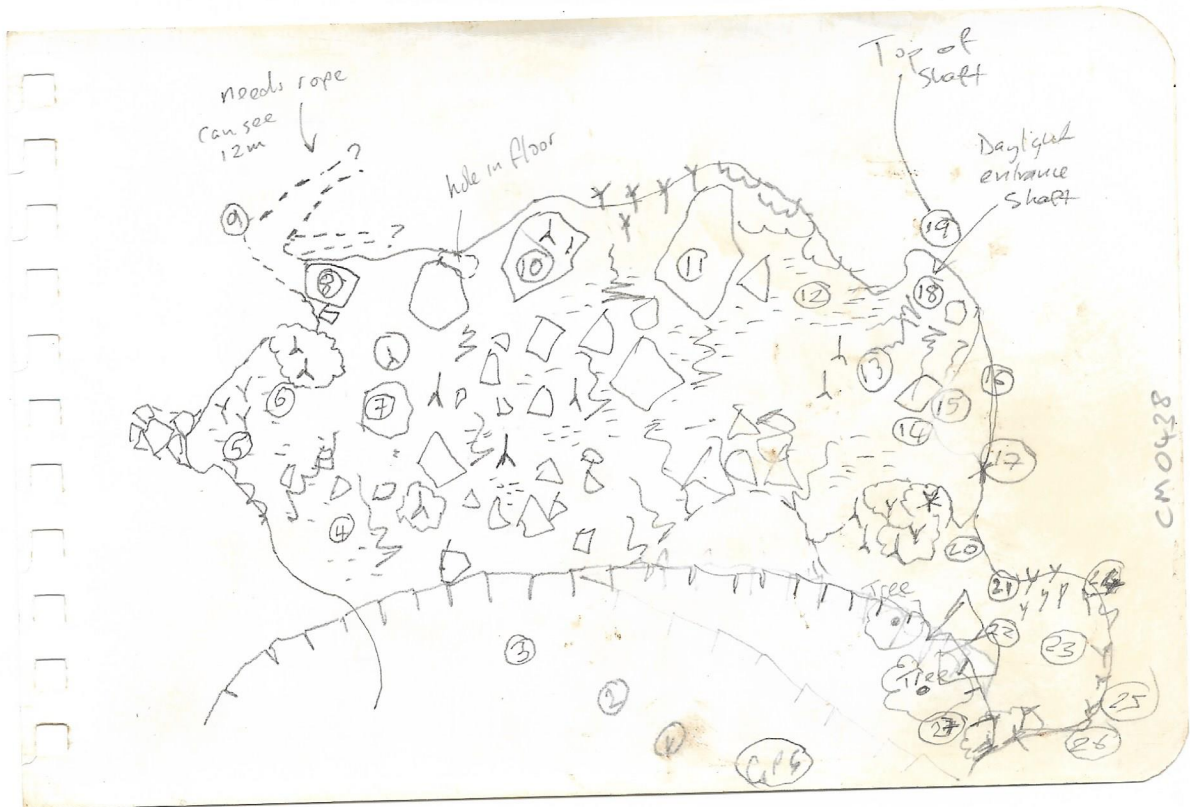 needs rope
can see
12m
?
?
hole in floor
Top of
Shaft
Daylight
entrance
Shaft
9
19
8
10
11
12
18
7
13
16
6
15
5
14
17
4
20
Tree
21
24
22
23
3
Tree
2
25
27
26
1
GPS
CM0438